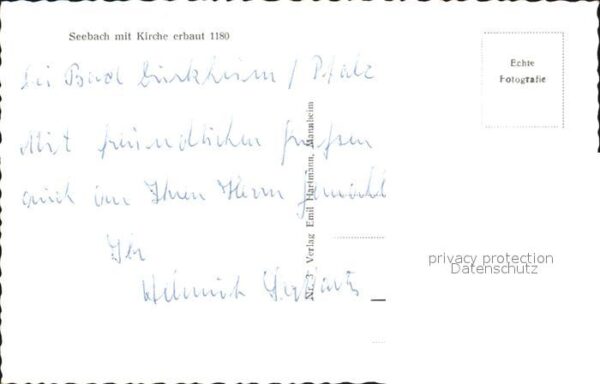 Seebach mit Kirche erbaut 1180
bei Bad Dürkheim / Pfalz
Mit freundlichen Grüßen
auch an Ihren Herrn Gemahl
Ihr
Helmut
Nr. 3 Verlag Emil Hartmann, Mannheim
Echte
Fotografie
privacy protection
Datenschutz